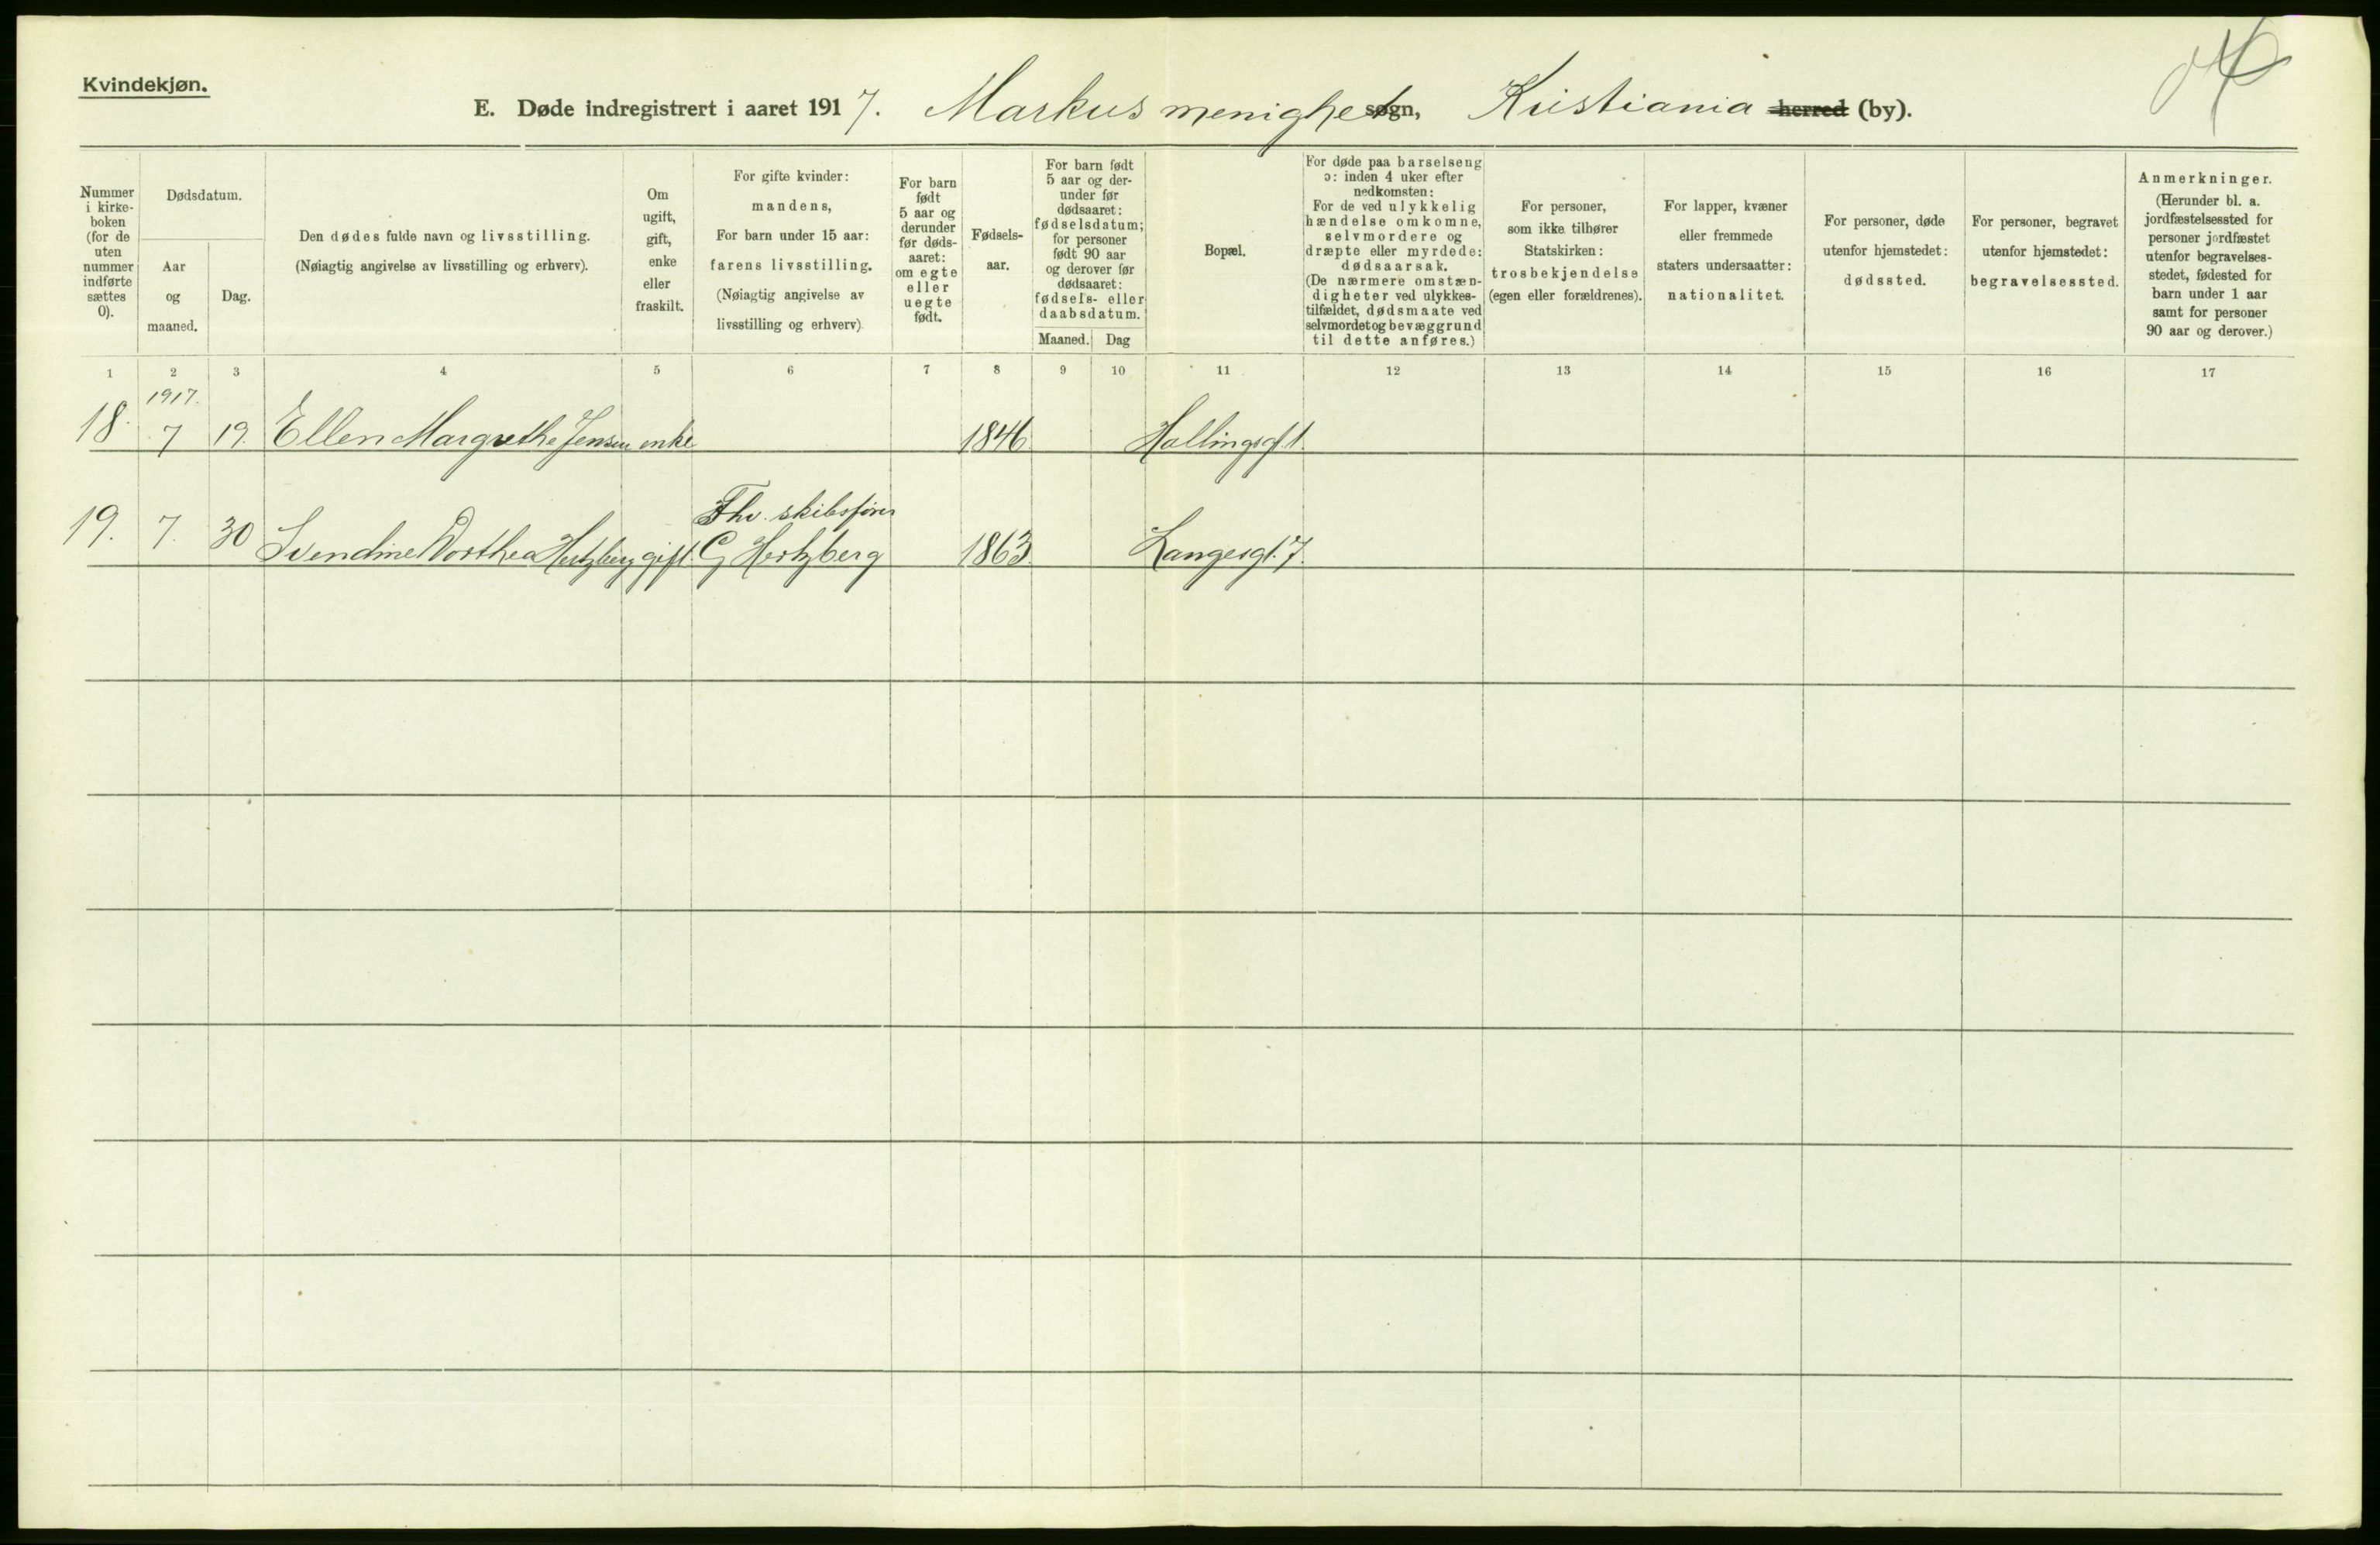 Kvindekjøn.
E. Døde indregistrert i aaret 1917. Markus menighet søgn, Kristiania herred (by).
Nummer i kirke-boken (for de uten nummer indførte sættes 0).
Dødsdatum.
Aar og maaned.
Dag.
Den dødes fulde navn og livsstilling.
(Nøiagtig angivelse av livsstilling og erhverv).
Om ugift, gift, enke eller fraskilt.
For gifte kvinder:
mandens,
For barn under 15 aar:
farens livsstilling.
(Nøiagtig angivelse av
livsstilling og erhverv)
For barn født 5 aar og derunder før døds-aaret: om egte eller uegte født.
Fødsels-aar.
For barn født 5 aar og der-under før dødsaaret: fødselsdatum; for personer født 90 aar og derover før dødsaaret: fødsels- eller daabsdatum.
Maaned. Dag
Bopæl.
For døde paa barselseng
ɔ: inden 4 uker efter
nedkomsten:
For de ved ulykkelig
hændelse omkomne,
selvmordere og
dræpte eller myrdede:
dødsaarsak.
(De nærmere omstæn-
digheter ved ulykkes-
tilfældet, dødsmaate ved
selvmordet og bevæggrund
til dette anføres.)
For personer,
som ikke tilhører
Statskirken:
trosbekjendelse
(egen eller forældrenes).
For lapper, kvæner
eller fremmede
staters undersaatter:
nationalitet.
For personer, døde
utenfor hjemstedet:
dødssted.
For personer, begravet
utenfor hjemstedet:
begravelsessted.
Anmerkninger.
(Herunder bl. a.
jordfæstelsessted for
personer jordfæstet
utenfor begravelses-
stedet, fødested for
barn under 1 aar
samt for personer
90 aar og derover.)
1 2 3 4 5 6 7 8 9 10 11 12 13 14 15 16 17
1917.
18. 7 19. Ellen Margrethe Jensen enke 1846 Hallingsgt 1.
Fhv. skibsfører
19. 7. 30 Svendine Dorthea Hertzberg gift. G Hertzberg 1863 Langesgt. 7.